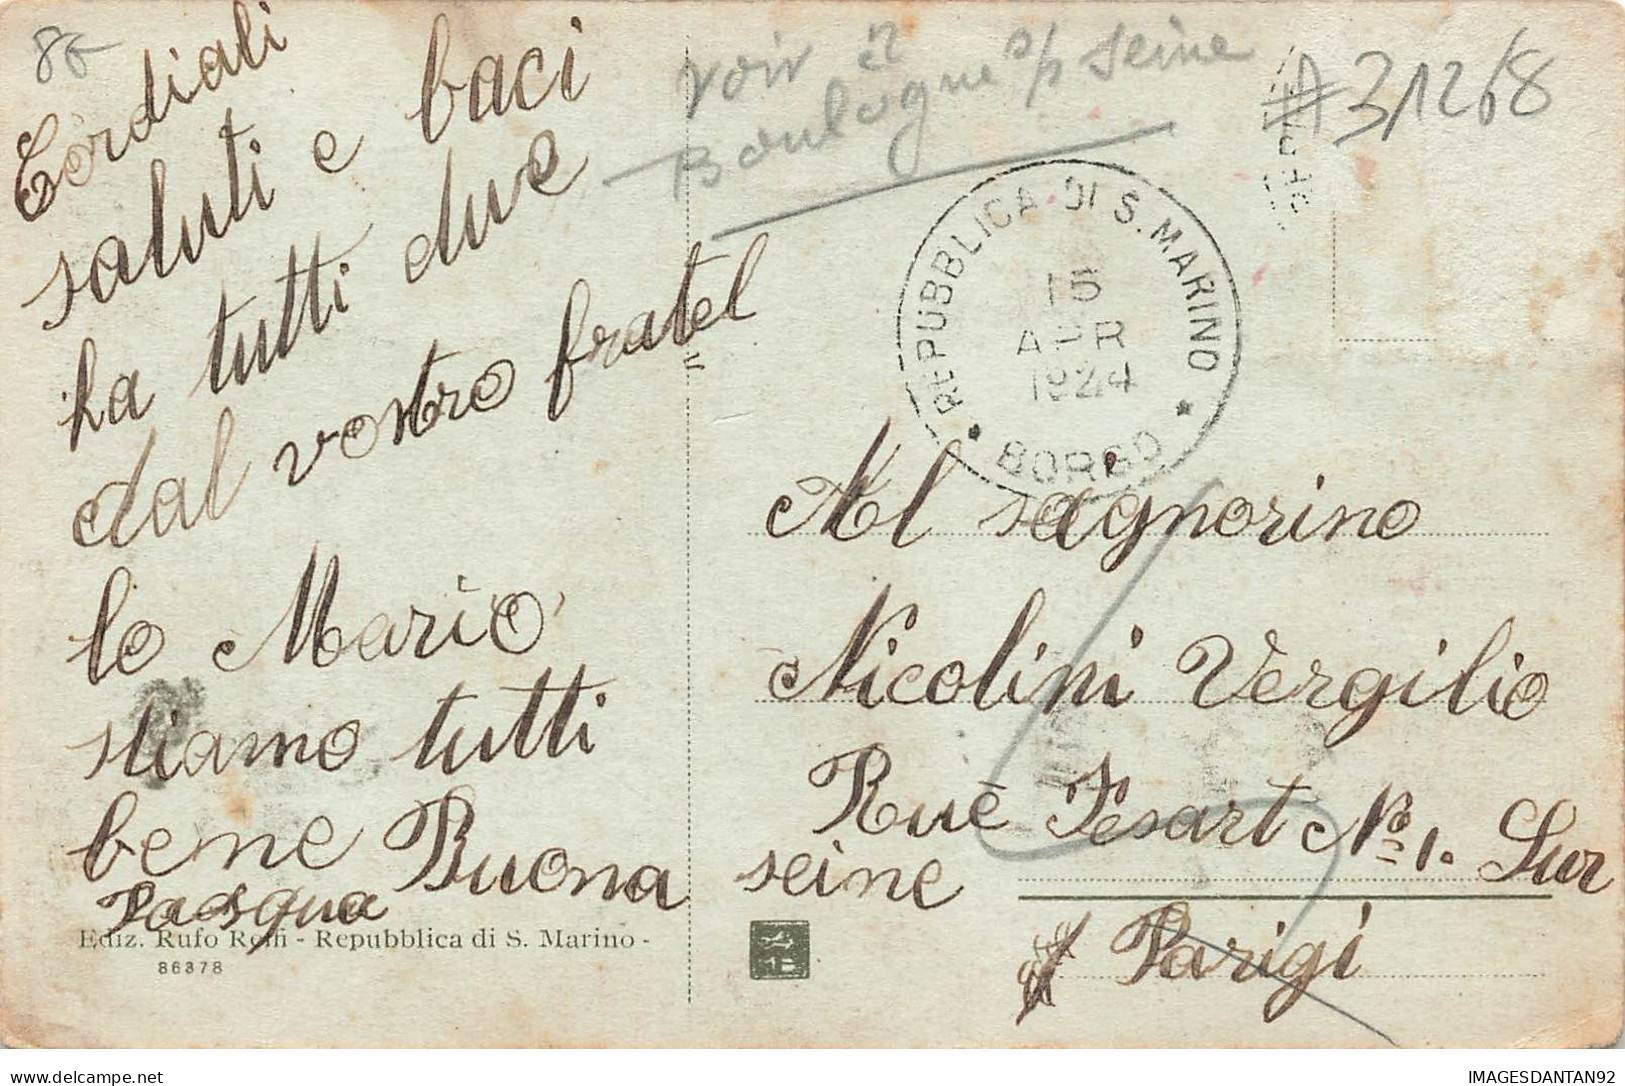 8€
Cordiali
saluti e baci
ha tutti due
dal vostro fratel
lo Mario
stiamo tutti
bene Buona
Pasqua
Ediz. Rufo Reffi - Repubblica di S. Marino -
86378
voir à
Boulogne s/p seine
#31268
REPUBBLICA DI S. MARINO
15
APR
1924
* BORGO *
Al sagnorino
Nicolini Vergilio
Rue Fesart No 1. Sur
seine
Parigi
IMAGESDANTAN92
delcampe.net